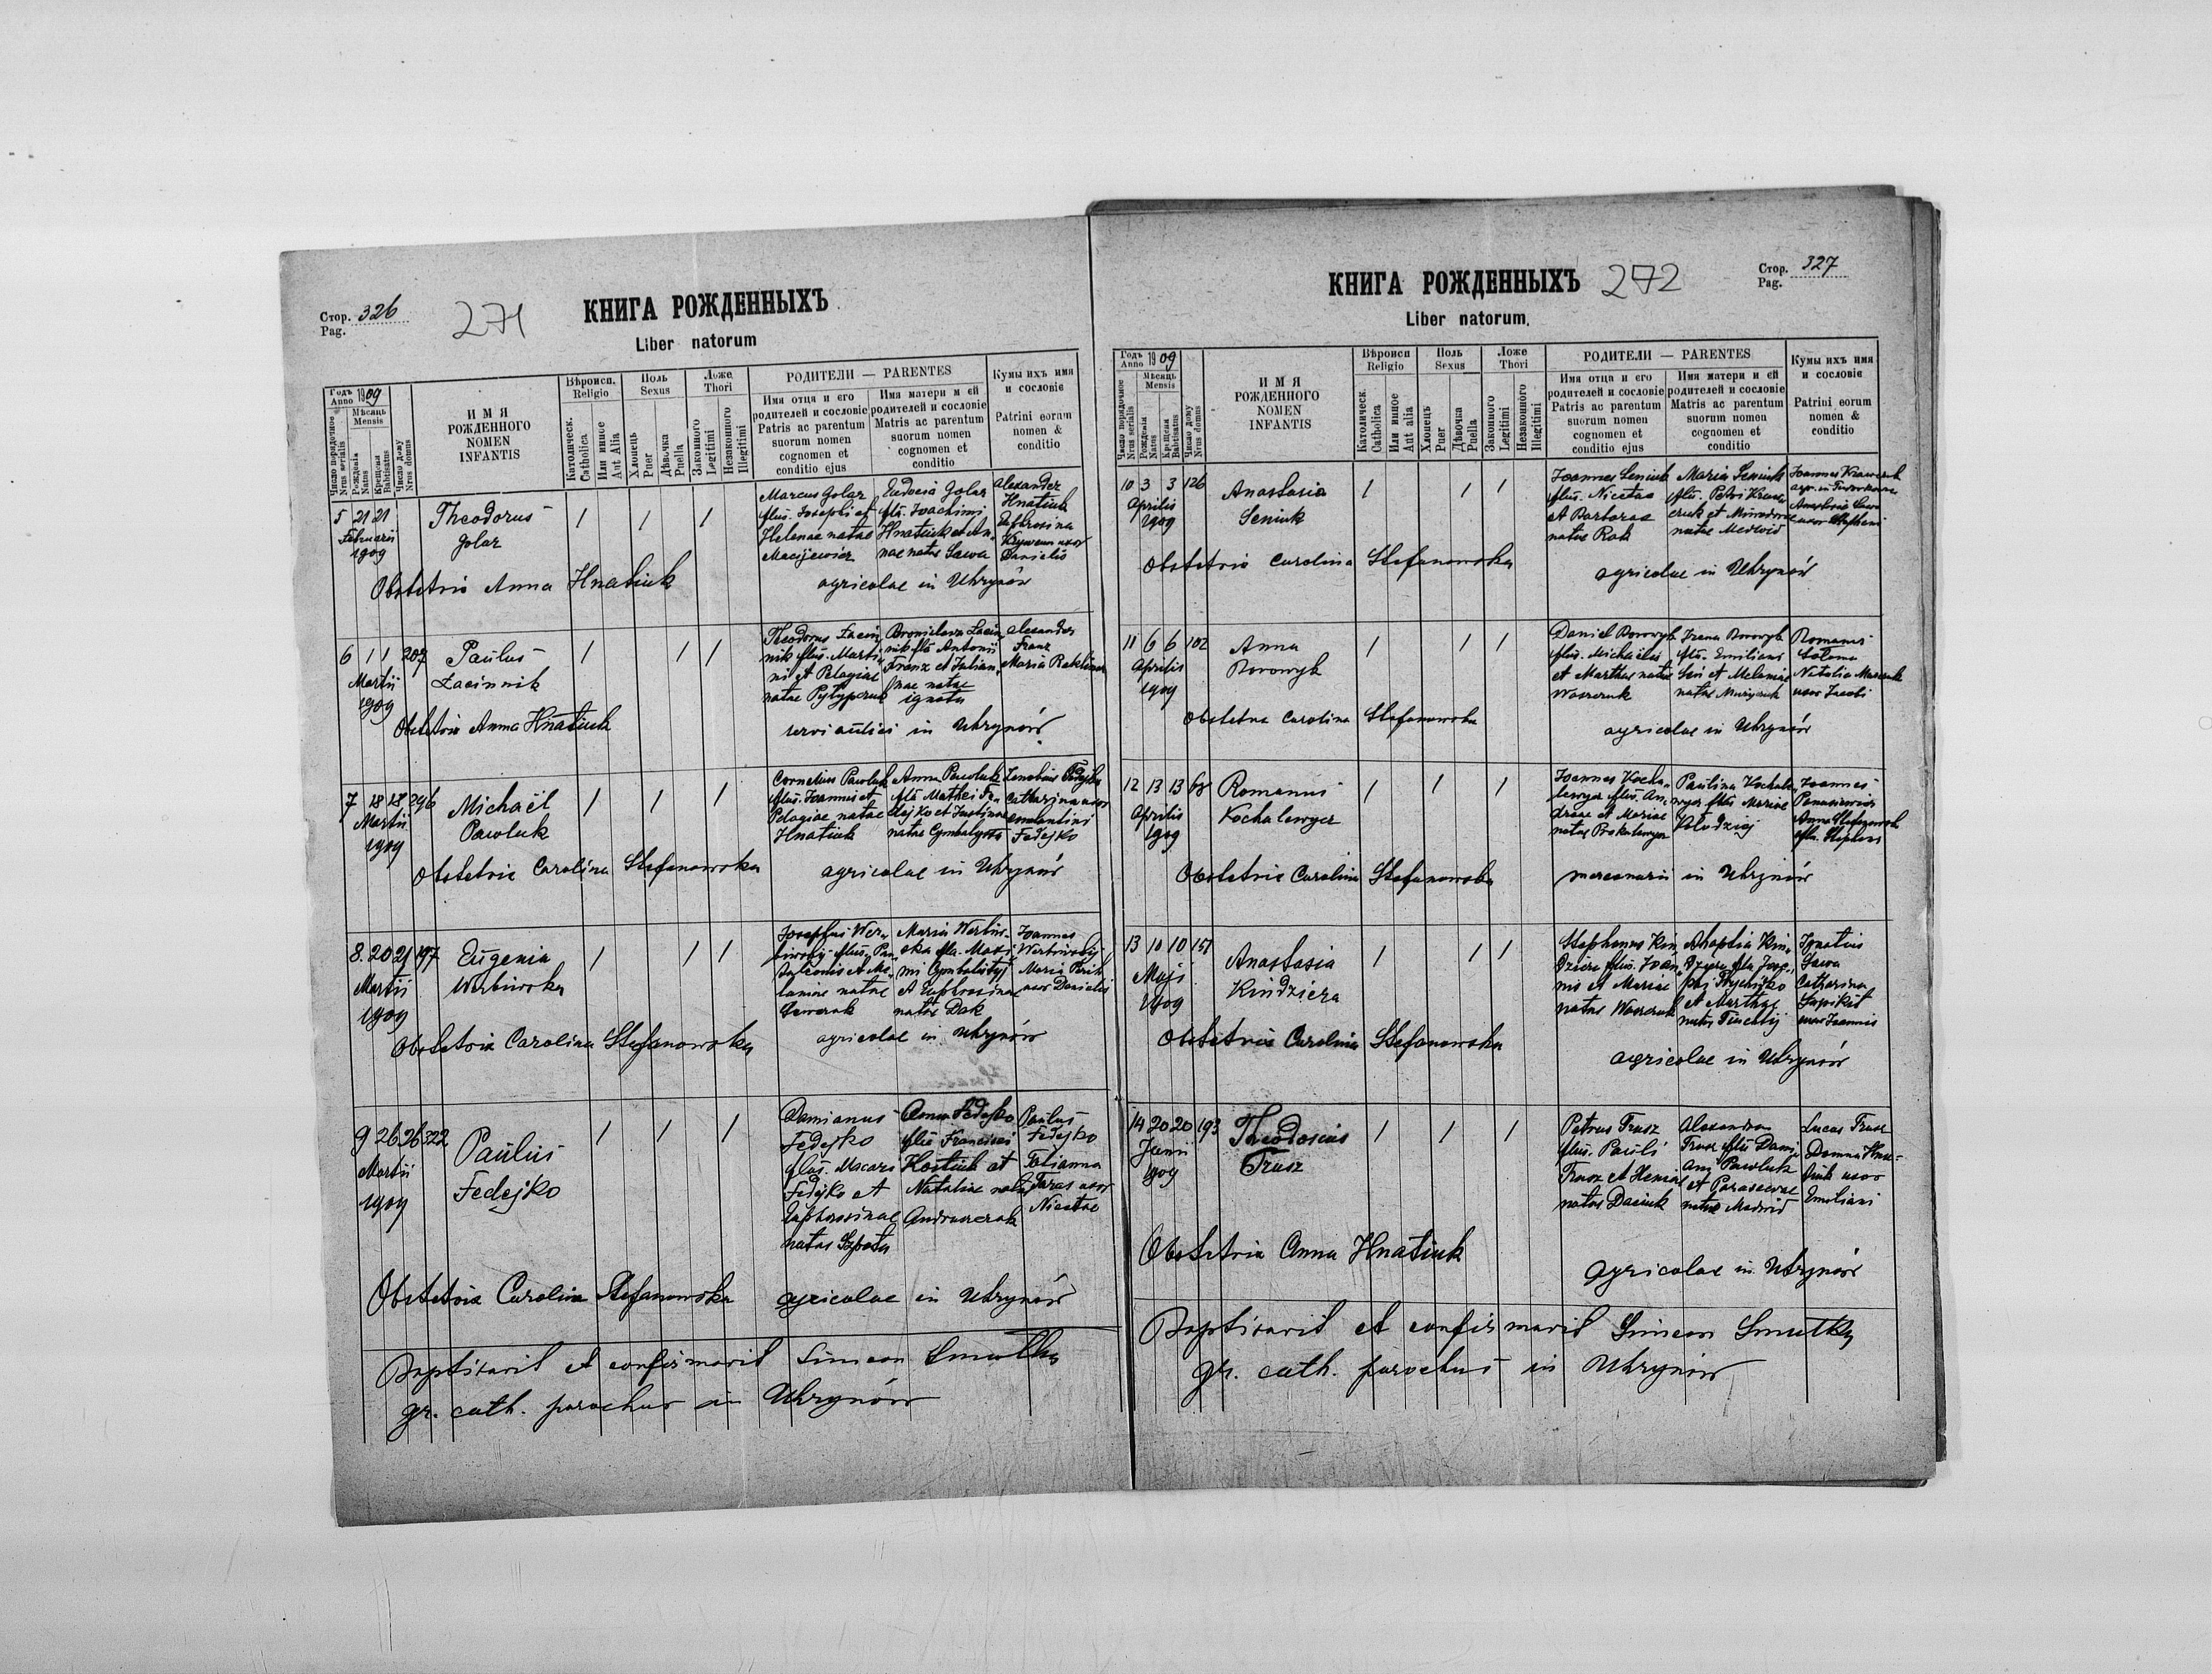 Стор. 326
Pag.
271
КНИГА РОЖДЕННЫХЪ
Liber natorum
Годъ Anno 1909
Мѣсяць Mensis
Число порядочное Nrus serialis
Рожденія Natus
Крещенія Babtisatus
Число дому Nrus domus
ИМЯ РОЖДЕННОГО
NOMEN INFANTIS
Вѣроисп. Religio
Католическ. Catholica
Или инное Aut Alia
Поль Sexus
Хлопець Puer
Дѣвочка Puella
Ложе Thori
Законного Legitimi
Незаконного Illegitimi
РОДИТЕЛИ — PARENTES
Имя отца и его родителей и сословіе
Patris ac parentum suorum nomen cognomen et conditio ejus
Имя матери и ей родителей и сословіе
Matris ac parentum suorum nomen cognomen et conditio
Кумы ихъ имя и сословіе
Patrini eorum nomen & conditio
5 21 21
Februarii
1909
Theodorus
Golar
/ / /
Marcus Golar
filius Josephi et
Helenae natae
Macijewicz
Eudocia Golar
filia Joachimi
Hnatiuk et An-
nae natae Sawa
Alexander
Hnatiuk
Eufrosina
uxor
Danielis
Obstetrix Anna Hnatiuk
agricolae in Uhrynów
6 1 1 207
Martii
1909
Paulus
Łacinnik
/ / /
Theodorus Łacin-
nik filius Marti-
ni et Pelagiae
natae Pylypczuk
Bronislava Łacin-
nik filia Antonii
Franz et Julian-
nae natae
ignota
Alexander
Franz
Maria
Obstetrix Anna Hnatiuk
servi aulici in Uhrynów
7 18 18 296
Martii
1909
Michaël
Pawluk
/ / /
Cornelius Pawluk
filius Joannis et
Pelagiae natae
Hnatiuk
Anna Pawluk
filia Mathei Fe-
dejko et Justinae
natae Cymbalysta
Zenobius Fedejko
Catharina uxor
Constantini
Fedejko
Obstetrix Carolina Stefanowska
agricolae in Uhrynów
8. 20 21 197
Martii
1909
Eugenia
Werbiwska
/ / /
Josephus Wer-
biwskyj filius Pan-
taleonis et Me-
laniae natae
Maria Werbiw-
ska filia Maxi-
mi Cymbalistyj
et Euphrosinae
natae Dak
Joannes
Werbiwskyj
Maria
uxor Danielis
Obstetrix Carolina Stefanowska
agricolae in Uhrynów
9 26 26 322
Martii
1909
Paulus
Fedejko
/ / /
Damianus
Fedejko
filius Macari
Fedejko et
Euphrosinae
natae
Anna Fedejko
filia Francisci
Kostiuk et
Nataliae natae
Andruszczak
Paulus
Fedejko
Tatianna
Taras uxor
Nicetae
Obstetrix Carolina Stefanowska
agricolae in Uhrynów
Baptisavit et confirmavit Simeon Smulka
gr. cath. parochus in Uhrynów
КНИГА РОЖДЕННЫХЪ
272
Стор. 327
Pag.
Liber natorum.
Годъ Anno 1909
Мѣсяць Mensis
Число порядочное Nrus serialis
Рожденія Natus
Крещенія Babtisatus
Число дому Nrus domus
ИМЯ РОЖДЕННОГО
NOMEN INFANTIS
Вѣроисп Religio
Католическ. Catholica
Или инное Aut alia
Поль Sexus
Хлопець Puer
Дѣвочка Puella
Ложе Thori
Законного Legitimi
Незаконного Illegitimi
РОДИТЕЛИ — PARENTES
Имя отца и его родителей и сословіе
Patris ac parentum suorum nomen cognomen et conditio ejus
Имя матери и ей родителей и сословіе
Matris ac parentum suorum nomen cognomen et conditio
Кумы ихъ имя и сословіе
Patrini eorum nomen & conditio
10 3 3 126
Aprilis
1909
Anastasia
Seniuk
/ / /
Joannes Seniuk
filius Nicetae
et Barbarae
natae Rak
Maria Seniuk
filia Petri Kraw-
czuk et
natae Medwid
Joannes Krawczuk
Anastasia
uxor Stephani
Obstetrix Carolina Stefanowska
agricolae in Uhrynów
11 6 6 102
Aprilis
1909
Anna
Borowyk
/ / /
Daniel Borowyk
filius Michaelis
et Marthae natae
Waszczuk
Irena Borowyk
filia Emiliani
et Melaniae
natae
Romanus
Natalia
uxor Jacobi
Obstetrix Carolina Stefanowska
agricolae in Uhrynów
12 13 13 68
Aprilis
1909
Romanus
Kochalewycz
/ / /
Joannes Kocha-
lewycz filius An-
dreae et Mariae
natae
Paulina Kochale-
wycz filia Mariae
Kolodziej
Joannes
Panasiewicz
Anna
filia Stephani
Obstetrix Carolina Stefanowska
mercenarii in Uhrynów
13 10 10 151
Maji
1909
Anastasia
Kindziera
/ / /
Stephanus Kin-
dziera filius Joan-
nis et Mariae
natae Waszczuk
Ahaphia Kin-
dziera filia Jose-
phi
et Marthae
natae
Ignatius
Sawa
Catharina
uxor Joannis
Obstetrix Carolina Stefanowska
agricolae in Uhrynów
14 20 20 193
Junii
1909
Theodosius
Trusz
/ / /
Petrus Trusz
filius Pauli
Trusz et Xeniae
natae Daciuk
Alexandra
Trusz filia Dami-
ani Pawluk
et Parascevae
natae Medwid
Lucas Trusz
Domna Hna-
tiuk uxor
Emiliani
Obstetrix Anna Hnatiuk
agricolae in Uhrynów
Baptisavit et confirmavit Simeon Smulka
gr. cath. parochus in Uhrynów